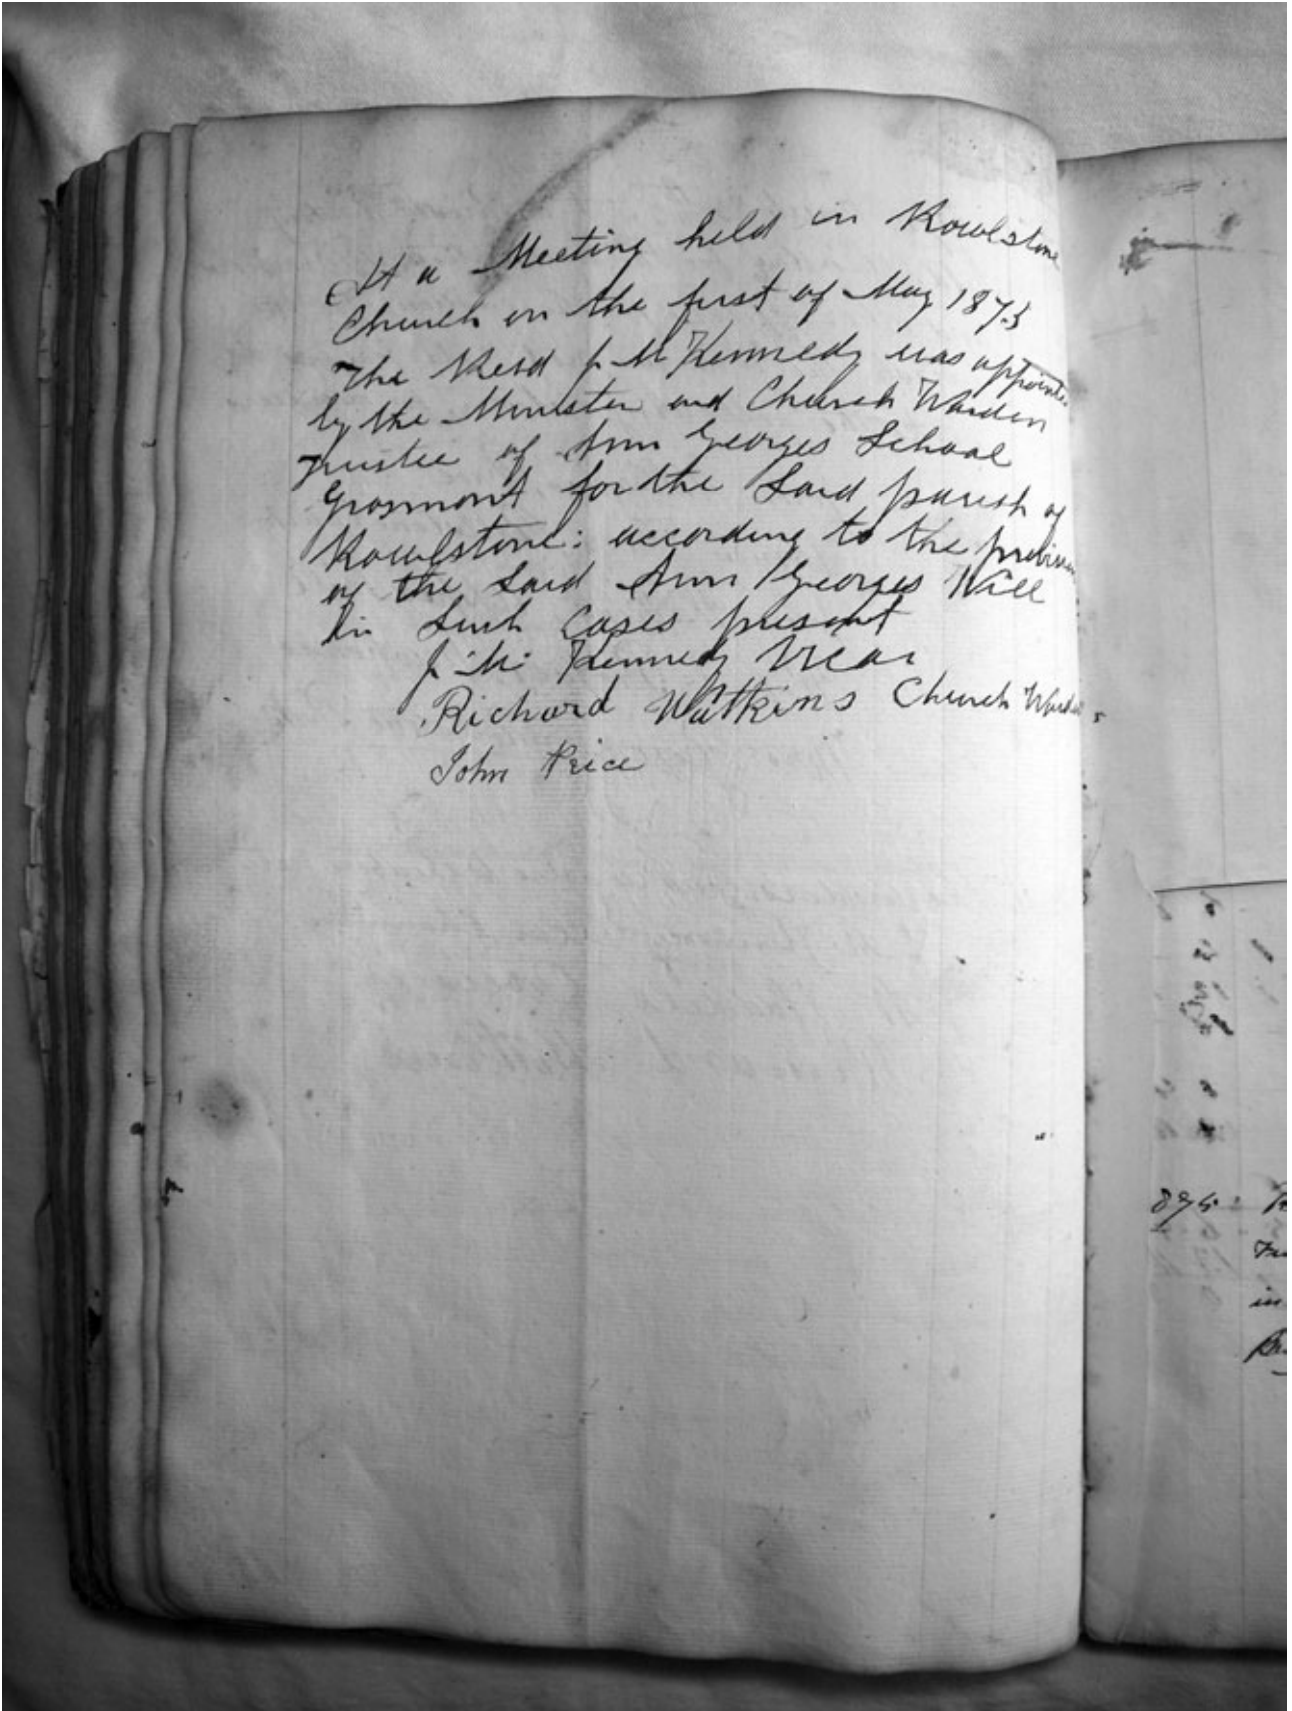 At a Meeting held in Rowlstone
Church on the first of May 1873
The Revd J. M Kennedy was appointed
by the Minister and Church Warden
Trustee of Ann Georges School
Grosmont for the Said parish of
Rowlstone: according to the
of the Said Ann Georges Will
in Such Cases present
J. M. Kennedy Vicar
Richard Watkins Church Warden
John Price
875
in